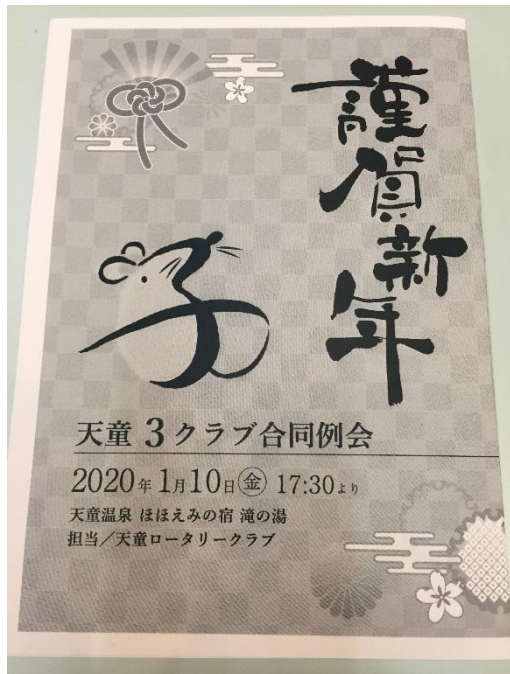 謹賀新年
天童3クラブ合同例会
2020年1月10日㊎ 17:30より
天童温泉 ほほえみの宿 滝の湯
担当/天童ロータリークラブ